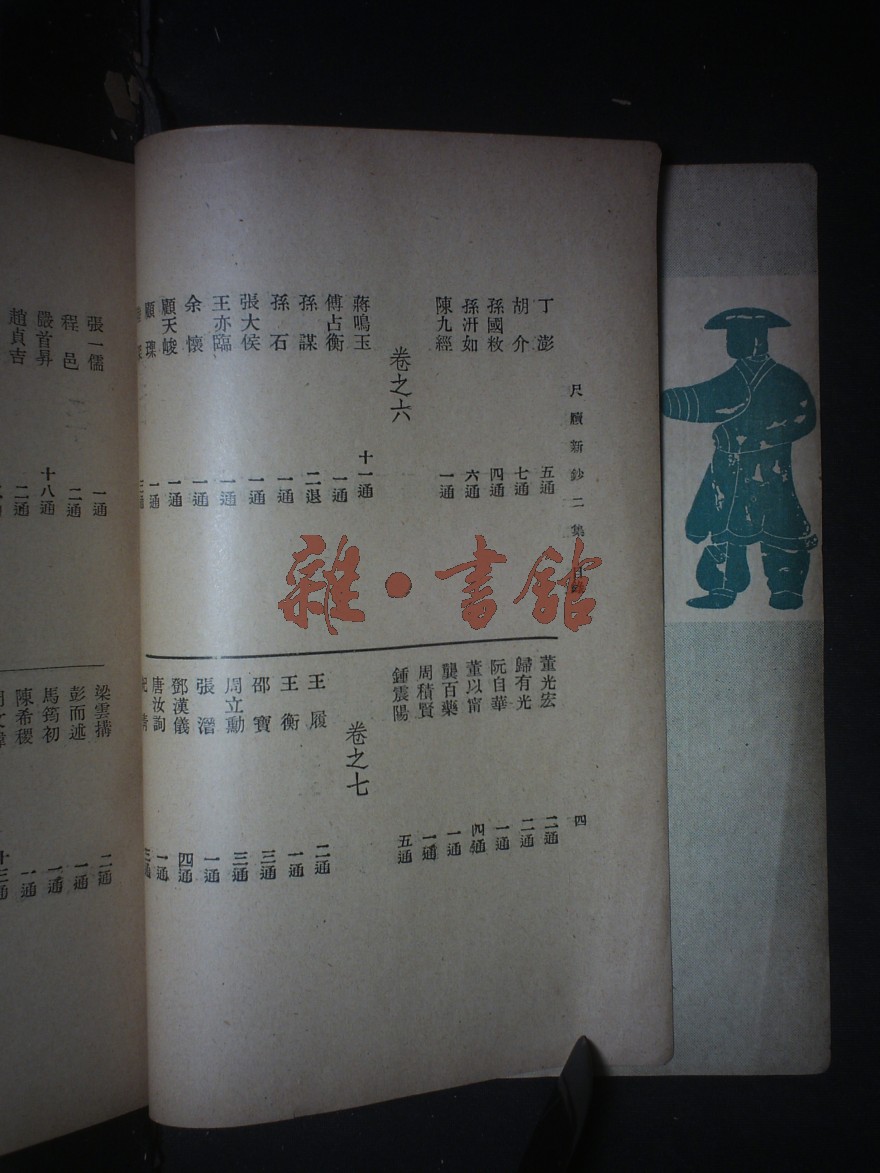 尺牘新鈔二集 目錄 四
丁澎 五通
胡介 七通
孫國敉 四通
孫汧如 六通
陳九經 一通
卷之六
蔣鳴玉 十一通
傅占衡 一通
孫謀 二退
孫石 一通
張大侯 一通
王亦臨 一通
余懷 一通
顧天峻 一通
顧璟 一通
三通
董光宏 二通
歸有光 二通
阮自華 一通
董以甯 四通
龔百藥 一通
周積賢 一通
鍾震陽 五通
卷之七
王履 二通
王衡 一通
邵寶 三通
周立勳 三通
張潛 一通
鄧漢儀 四通
唐汝詢 一通
三通
張一儒 一通
程邑 二通
嚴首昇 十八通
趙貞吉 二通
梁雲搆 二通
彭而述 一通
馬筠初 一通
陳希稷 一通
十三通
雜·書館